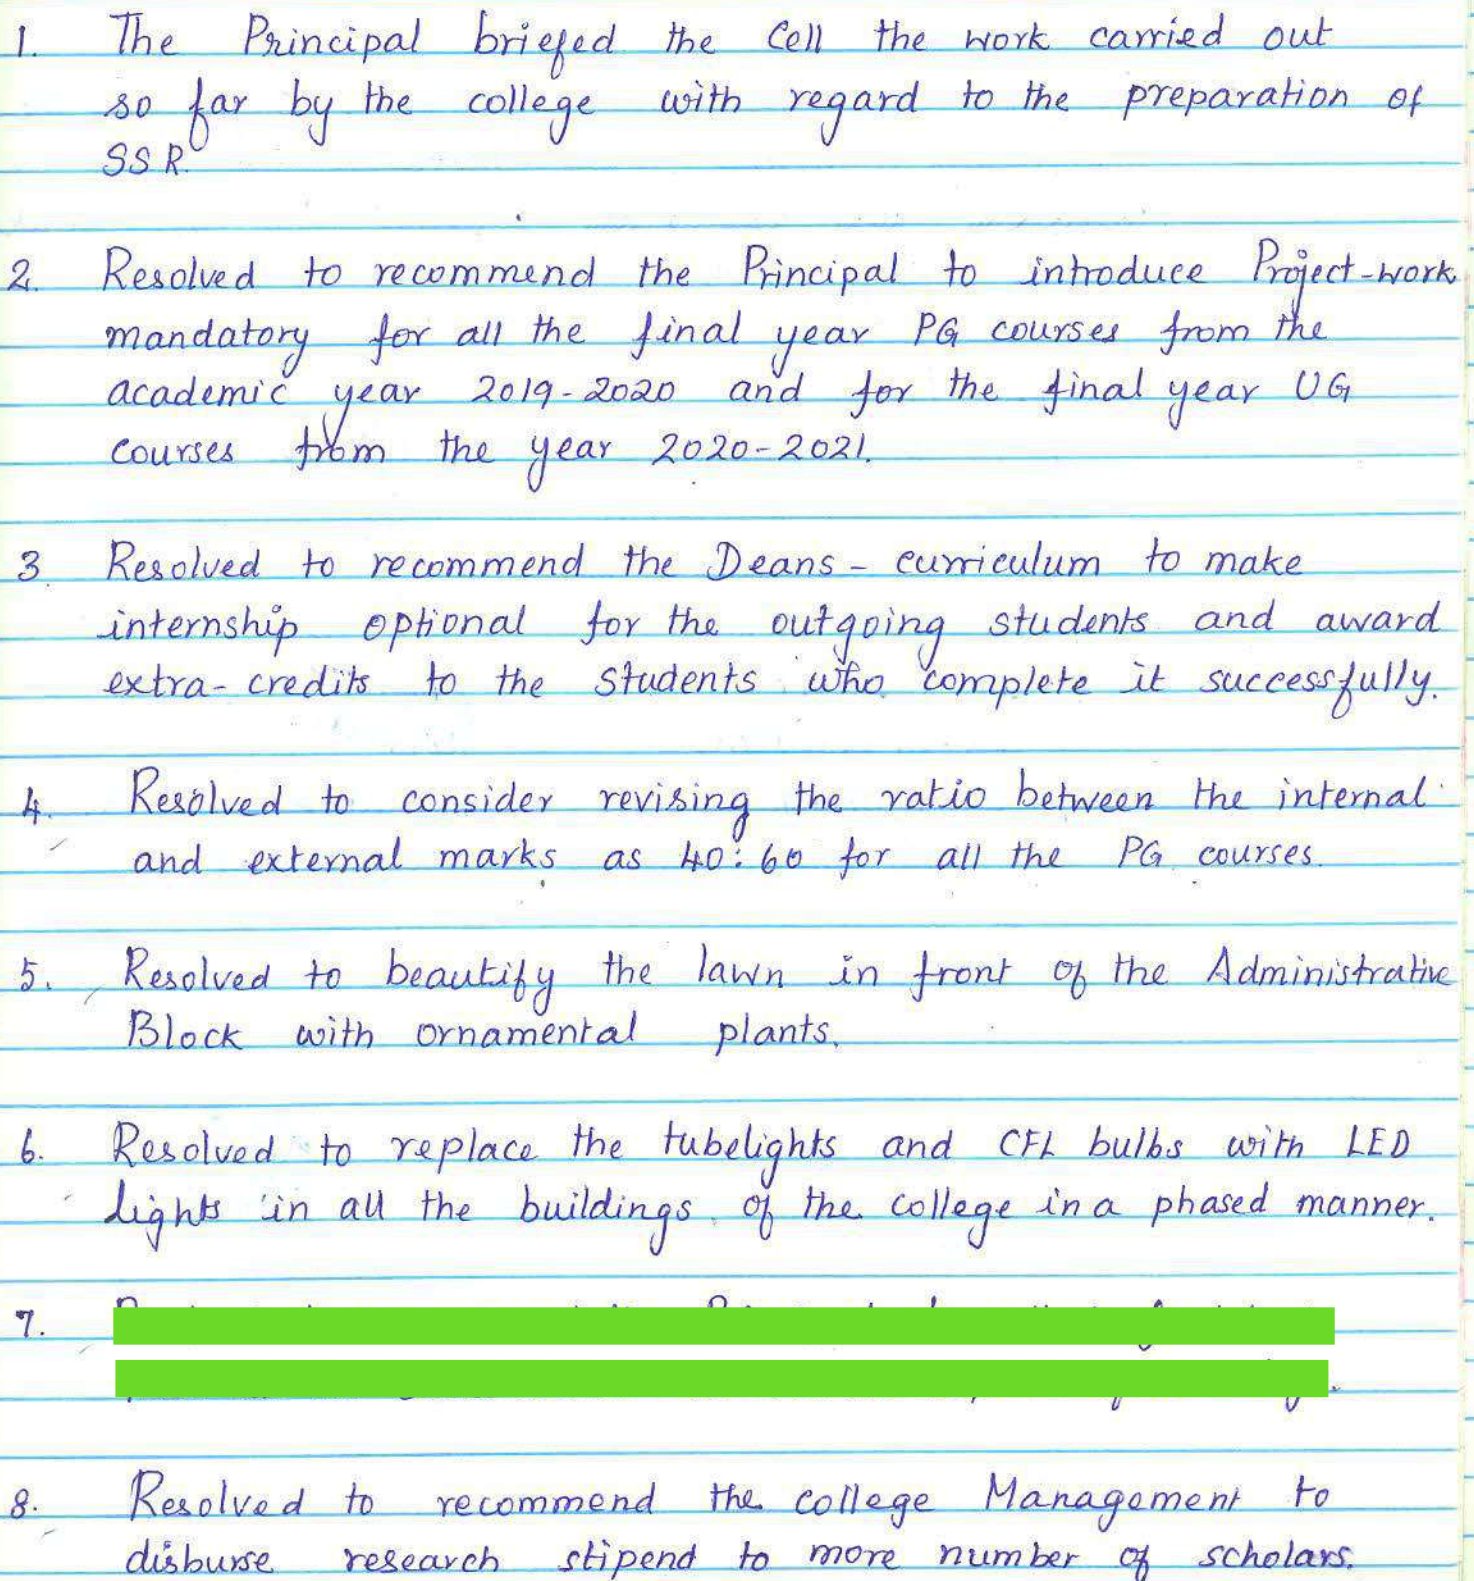 1. The Principal briefed the Cell the work carried out
so far by the college with regard to the preparation of
SSR.
2. Resolved to recommend the Principal to introduce Project-work
mandatory for all the final year PG courses from the
academic year 2019-2020 and for the final year UG
courses from the year 2020-2021.
3. Resolved to recommend the Deans - curriculum to make
internship optional for the outgoing students and award
extra-credits to the students who complete it successfully.
4. Resolved to consider revising the ratio between the internal
and external marks as 40:60 for all the PG courses.
5. Resolved to beautify the lawn in front of the Administrative
Block with ornamental plants.
6. Resolved to replace the tubelights and CFL bulbs with LED
lights in all the buildings of the college in a phased manner.
7.
8. Resolved to recommend the college Management to
disburse research stipend to more number of scholars.